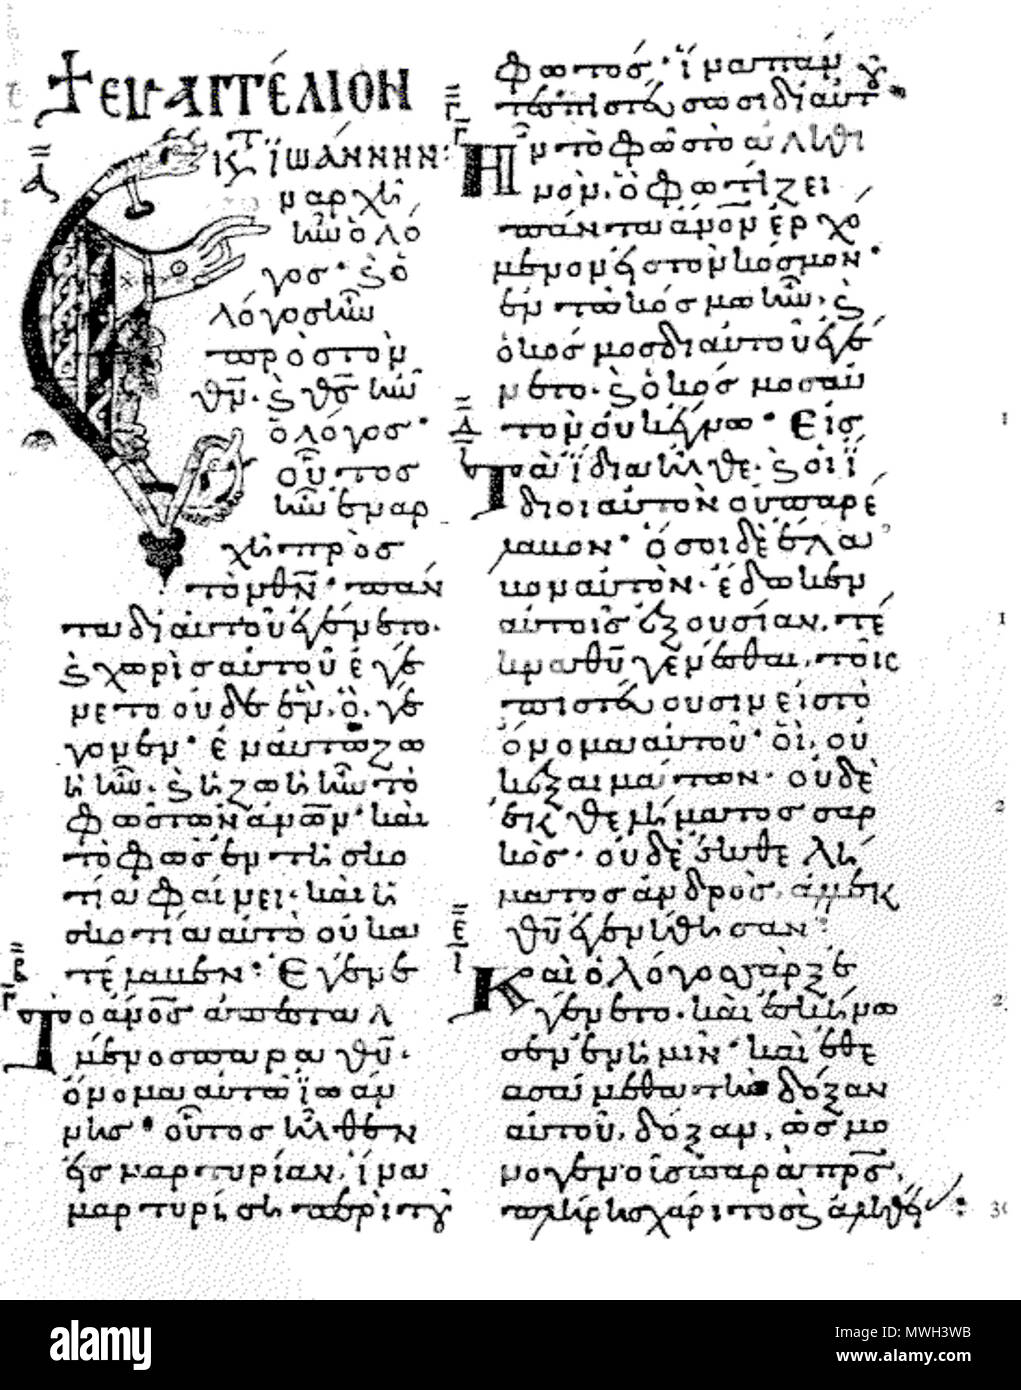 ☩ ΕΥΑΓΓΈΛΙΟΝ
Κ͞Τ ΪΩΆΝΝΗΝ:
Α͞
Ε
ν ἀρχῆ
ἦν ὁ λό
γος· ϗ ὁ
λόγος ἦν
πρὸς τὸν
θ͞ν· ϗ θ͞ς ἦν
ὁ λόγος·
οὗτος
ἦν ἐν ἀρ
χῆ πρὸς
τὸν θ͞ν· πάν
τα δι αὐτοῦ ἐγένετο·
ϗ χωρὶς αὐτοῦ ἐγέ
νετο οὐδὲ ἕν· ὃ γέ
γονεν· ἐν αὐτῶ ζω
ὴ ἦν· ϗ ἡ ζωὴ ἦν τὸ
φῶς τῶν ἀν͞ων· καὶ
τὸ φῶς ἐν τῆ σκο
τία φαίνει· καὶ ἡ
σκοτία αὐτὸ οὐ κα
τέλαβεν· Ἐγένε
Β͞
Το ἄν͞ος ἀπεσταλ
μένος παρὰ θ͞υ·
ὄνομα αὐτῶ ϊωάν
νης· οὗτος ἦλθεν
εἰς μαρτυρίαν, ἵνα
μαρτυρήση περὶ τοῦ
φωτός· ἵνα πάν
τες πιστεύσωσι δι αὐτοῦ·
Γ͞
Ἦν τὸ φῶς τὸ ἀληθι
νὸν, ὃ φωτίζει
πάντα ἄν͞ον ἐρχό
μενον εἰς τὸν κόσμον·
ἐν τῶ κόσμω ἦν· ϗ
ὁ κόσμος δι αὐτοῦ ἐγέ
νετο· ϗ ὁ κόσμος αὐ
Δ͞
τὸν οὐκ ἔγνω· Εἰς
Τὰ ἴδια ἦλθε· ϗ οἱ ἴ
διοι αὐτὸν οὐ παρέ
λαβον· ὅσοι δὲ ἔλα
βον αὐτὸν· ἔδωκεν
αὐτοῖς ἐξουσίαν, τέ
κνα θ͞υ γενέσθαι, τοῖς
πιστεύουσιν εἰς τὸ
ὄνομα αὐτοῦ· οἳ, οὐ
κ ἐξ αἱμάτων· οὐδὲ
ἐκ θελήματος σαρ
κὸς· οὐδὲ ἐκ θελή
ματος ἀνδρὸς, ἀλλ ἐκ
θ͞υ ἐγεννήθησαν·
Ε͞
Καὶ ὁ λόγος σὰρξ ἐ
γένετο· καὶ ἐσκήνω
σεν ἐν ἡμῖν· καὶ ἐθε
ασάμεθα τὴν δόξαν
αὐτοῦ, δόξαν, ὡς μο
νογενοῦς παρὰ π͞ρς,
πλήρης χάριτος ϗ ἀληθείας:
alamy
Image ID: MWH3WB
www.alamy.com